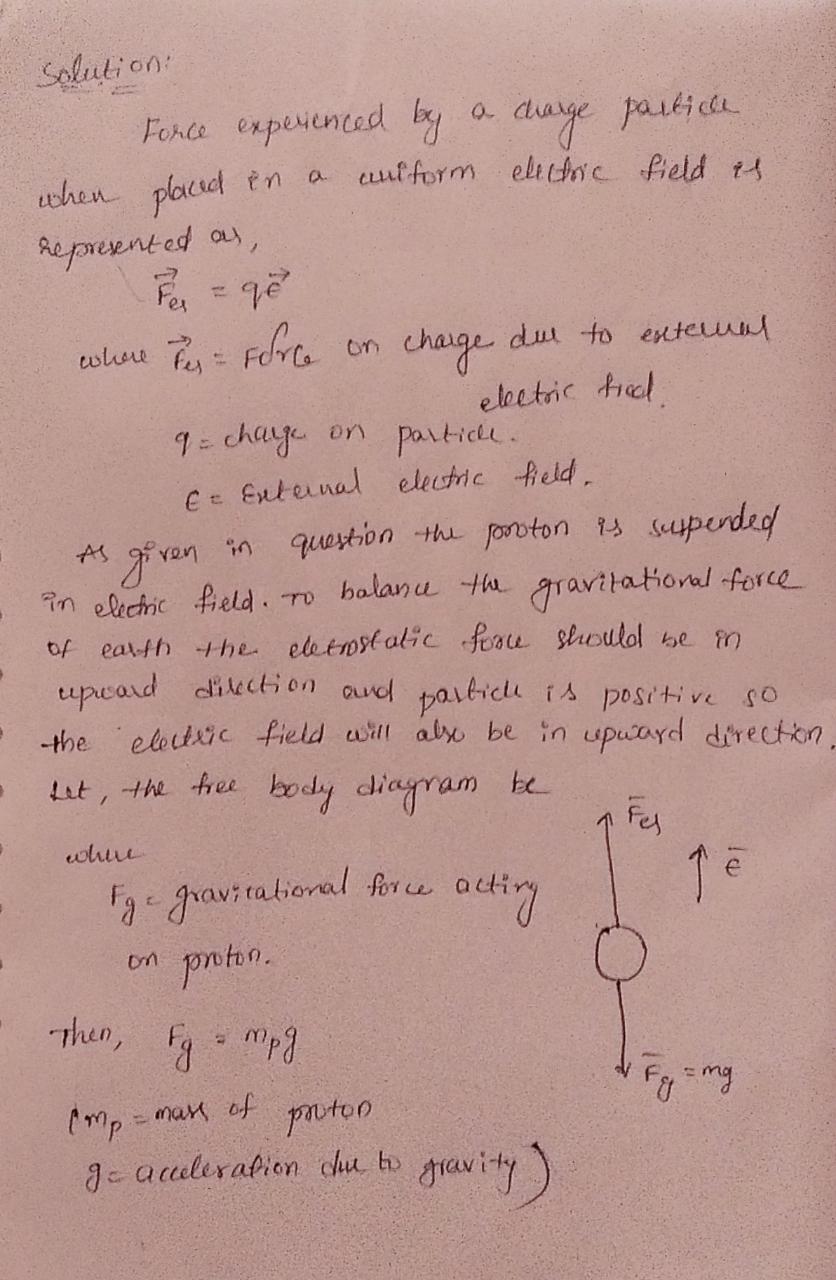 Solution:
Force experienced by a charge particle
when placed in a uniform electric field is
represented as,
F⃗es = qE⃗
where F⃗es = Force on charge due to external
electric fied.
q = charge on particle.
E = External electric field.
As given in question the proton is suspended
in electric field. To balance the gravitational force
of earth the eletrostatic force should be in
upward direction and particle is positive so
the electric field will also be in upward direction.
Let, the free body diagram be
F̄es
Ē
where
Fg = gravitational force acting
on proton.
Then, Fg = mpg
F̄g = mg
(mp = mass of proton
g = acceleration due to gravity)